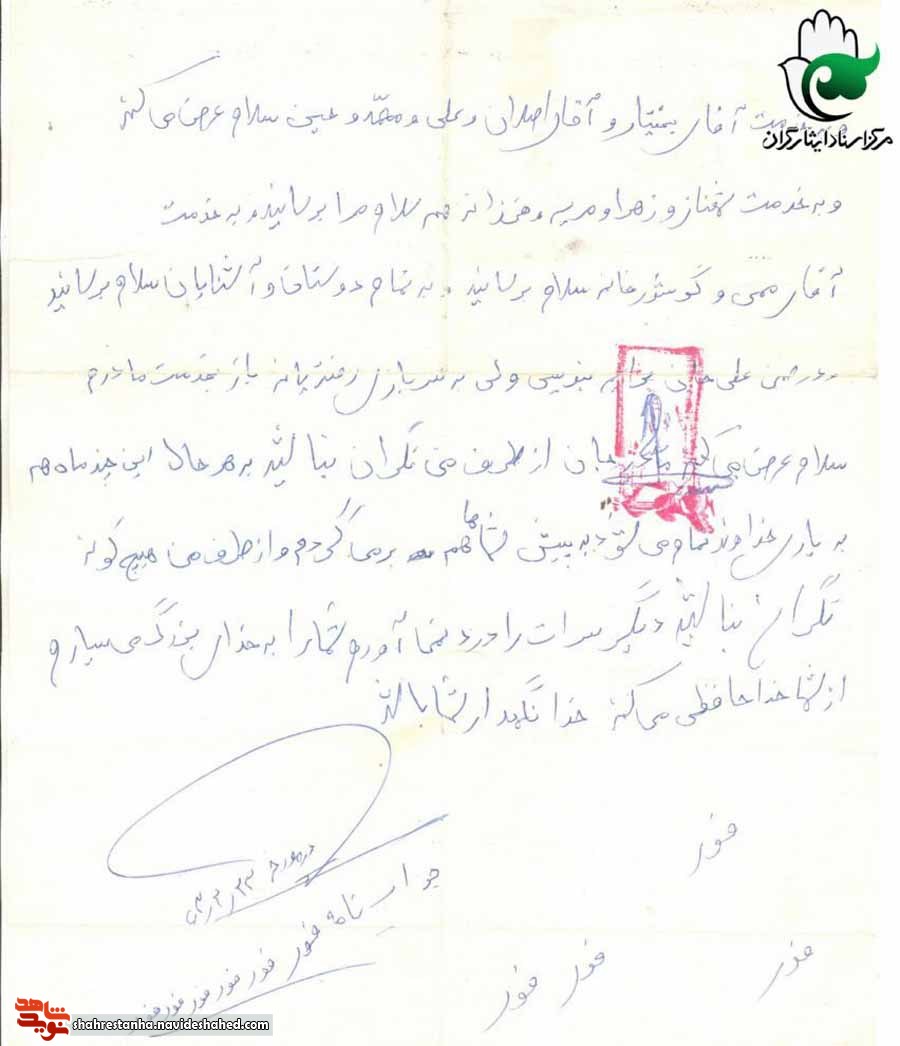 مرکز اسناد ایثارگران
خدمت آقای بختیار و آقای اصلان و علی و محمد و عین سلام عرض می کنم
و به خدمت شهناز و زهرا و مریم و فرزانه هم سلام مرا برسانید و به خدمت
آقای ممی و گوشور خانم سلام برسانید و به تمام دوستان و آشنایان سلام برسانید
در ضمن علی جان نویسی ولی به سربازی رفته یا نه باز خدمت مادرم
سلام عرض می کنم مادر جان از طرف من نگران نباشید به هر حال این چند ماه هم
به یاری خداوند تمام می شود به پیش شماها هم بر می گردم و از طرف من هیچ گونه
نگران نباشید دیگر سرت را درد نمی آورم شما را به خدای بزرگ می سپارم
از شما خداحافظی می کنم خدا نگهدار شما باشد
فور
در مورخه
جواب نامه فور فور فور فور فور فور
فور فور فور
نوید شاهد
shahrestanha.navideshahed.com